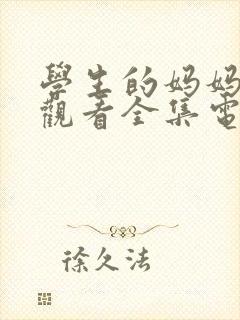 學生的妈妈
觀看全集電
徐久法